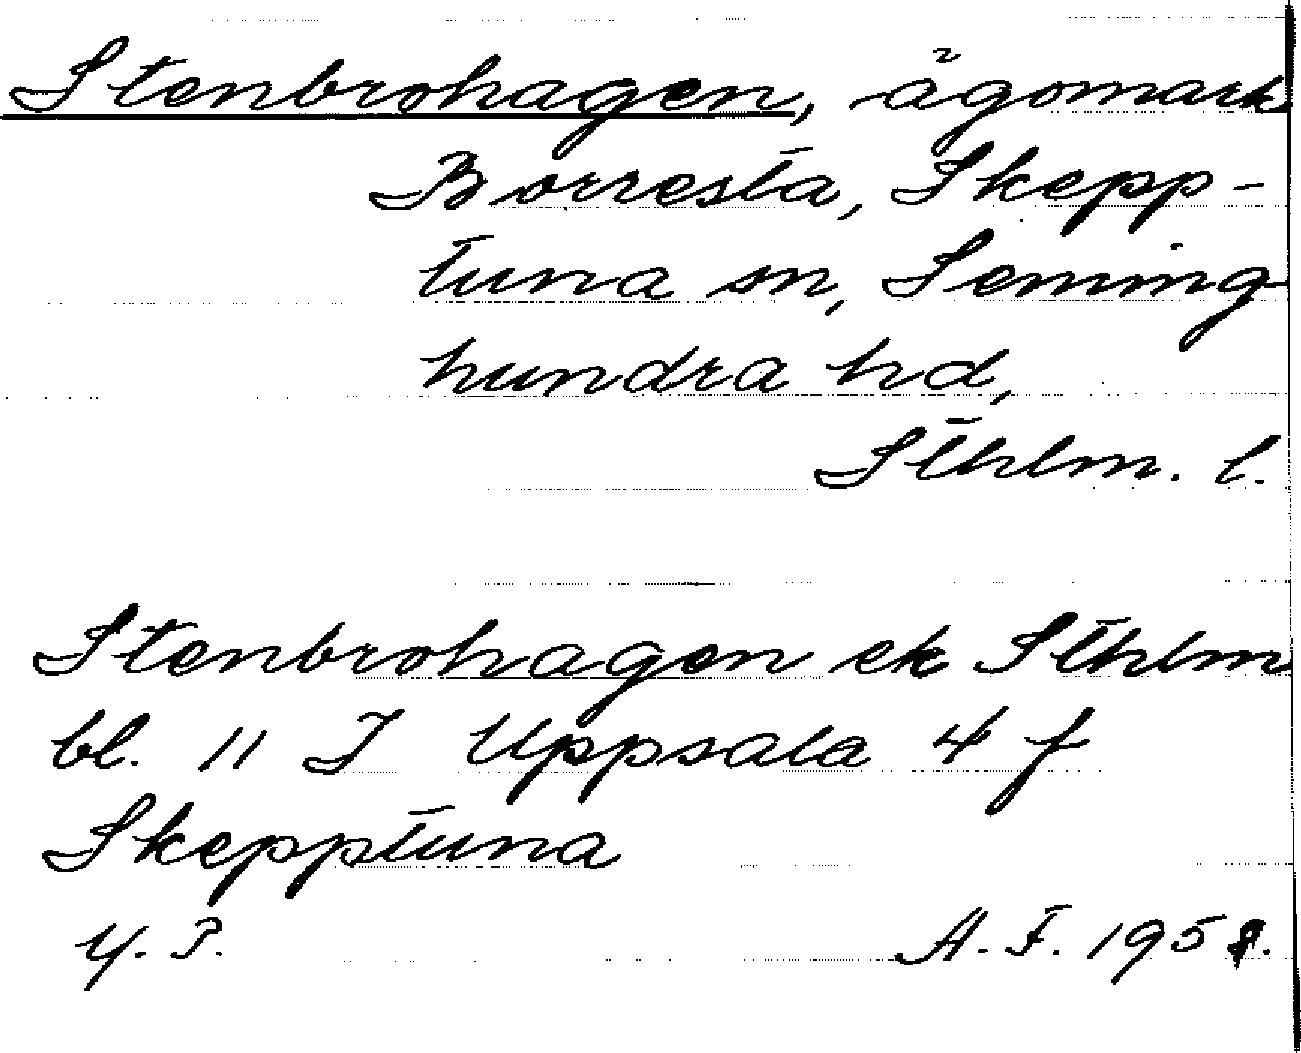 Stenbrohagen, ägomark
Borresta, Skepp-
tuna sn, Seming
hundra hd,
Sthlm. l.
Stenbrohagen ek Sthlm
bl. 11 I Uppsala 4 f
Skepptuna
Y. P. A. F. 195